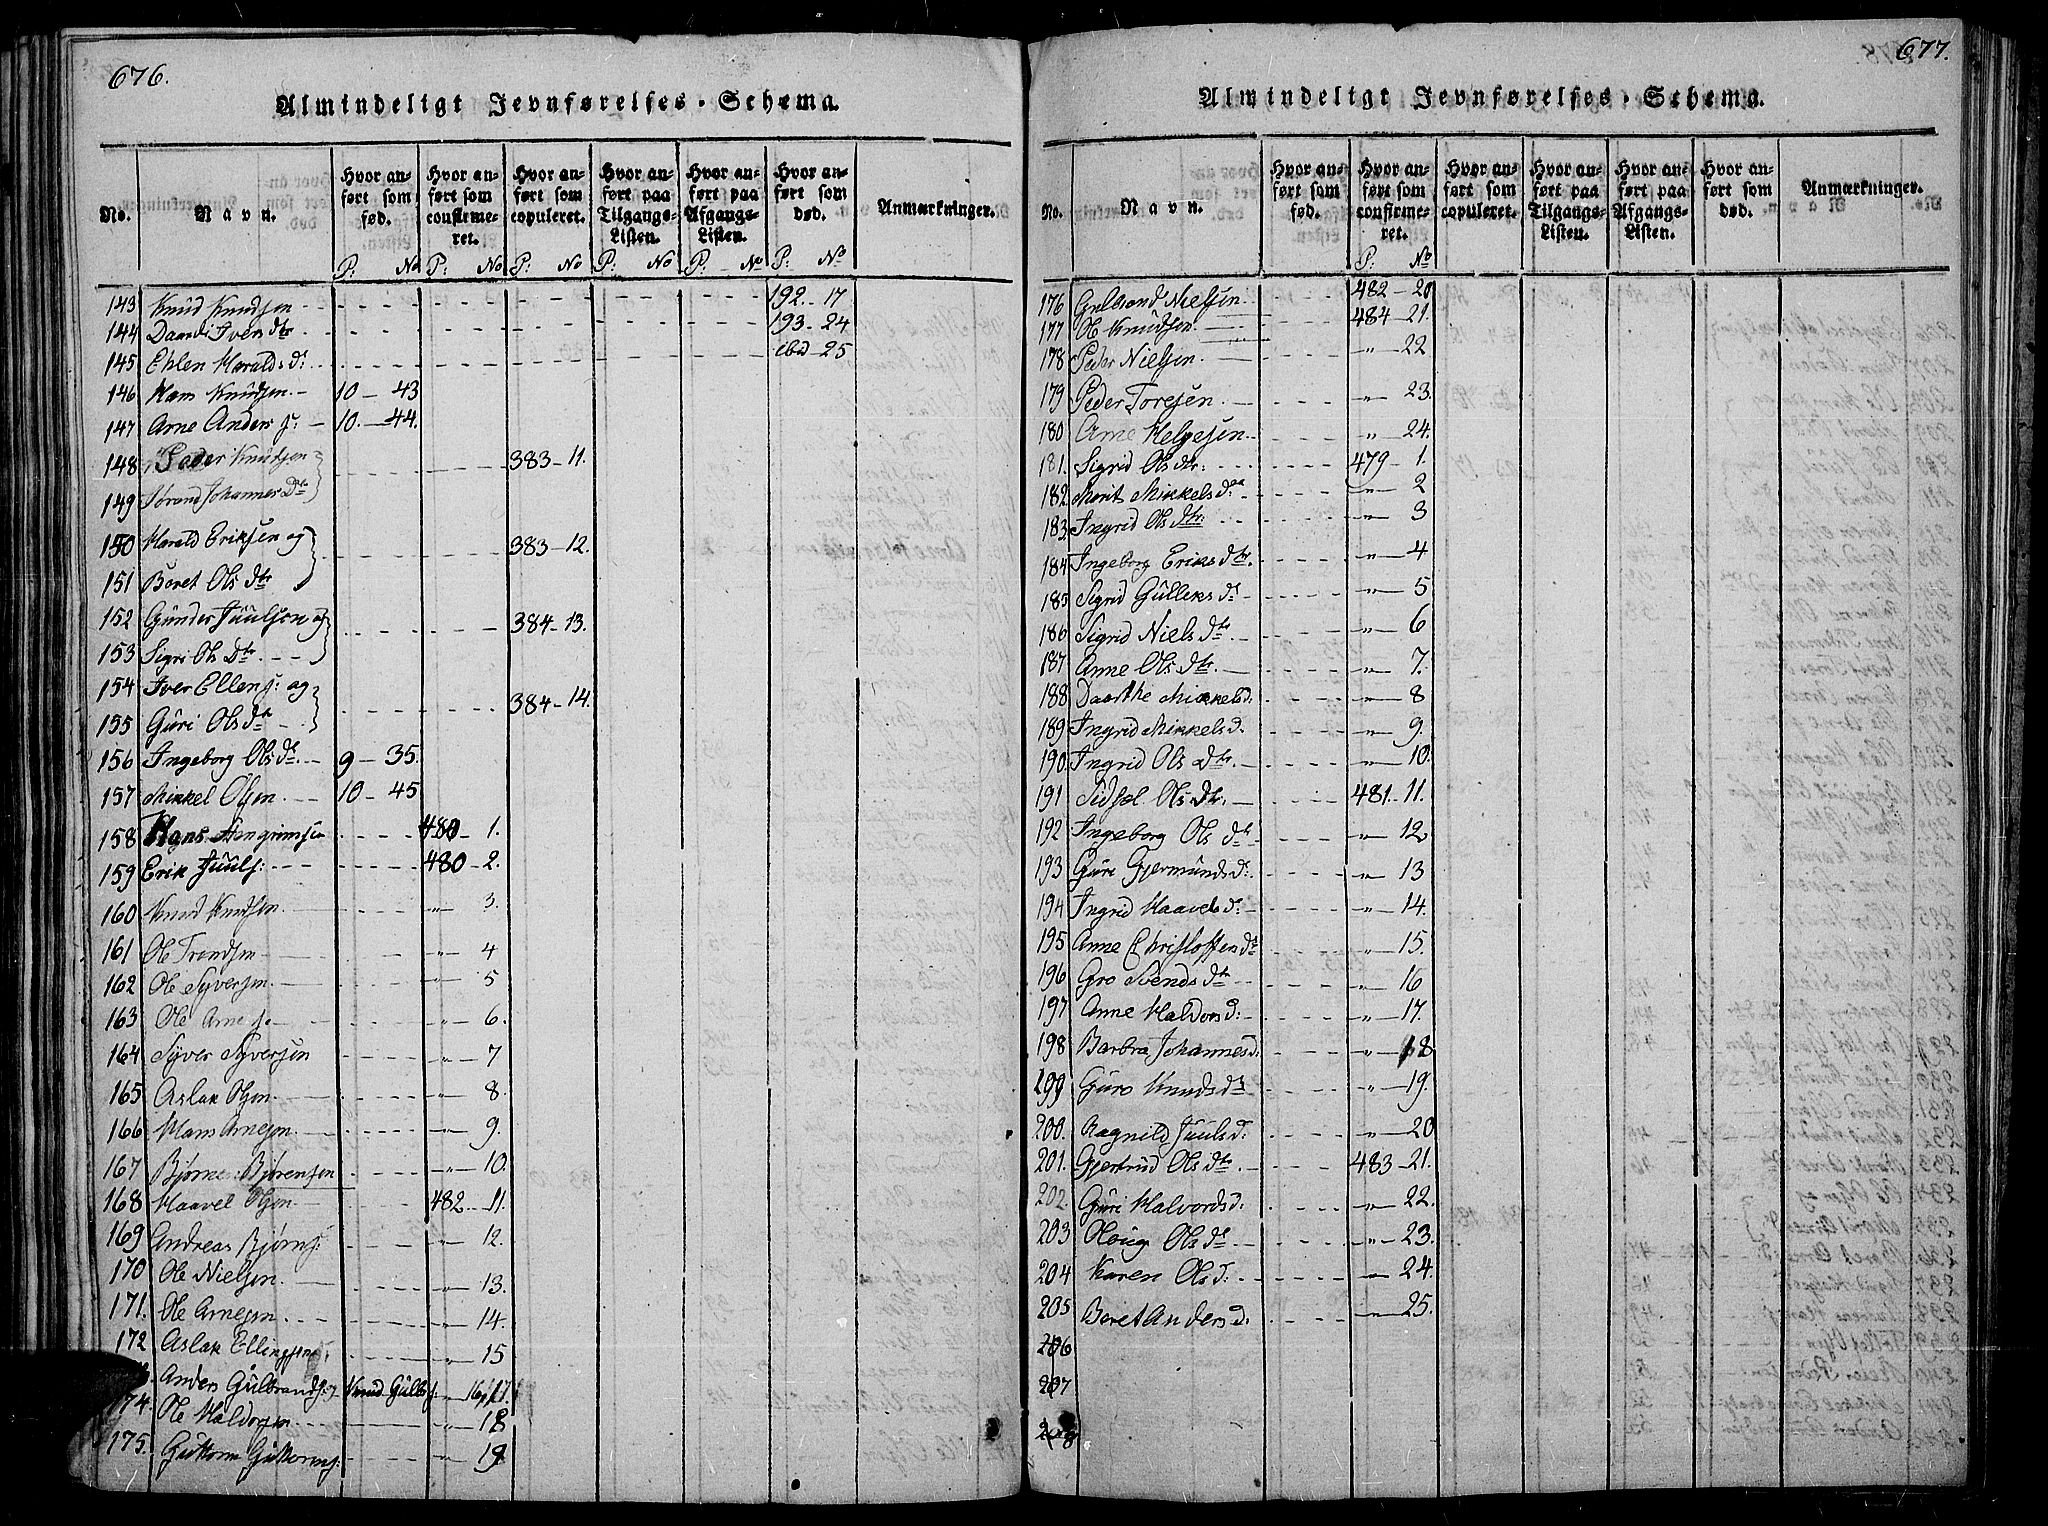 676.
Almindeligt Jevnførelses-Schema.
No. Navn. Hvor anført som fød. Hvor anført som confirmeret. Hvor anført som copuleret. Hvor anført paa Tilgangs-Listen. Hvor anført paa Afgangs-Listen. Hvor anført som død. Anmærkninger.
P: No P: No P: No P: No P: No P: No
143 Knud Knudsen 192 - 17
144 Daardi Ivers dtr 193 - 24
145 Ehlen Haralds d: ibid - 25
146 Hans Knudsen 10 - 43
147 Arne Anders s: 10 - 44.
148 Peder Knudsen 383 - 11.
149 Jørand Johannes Dtr
150 Harald Eriksen og 383 - 12.
151 Boret Ols dtr
152 Gunder Juulsen og 384 - 13.
153 Sigri Ols Dtr
154 Iver Ellens: og 384 - 14.
155 Guri Ols dtr
156 Ingeborg Ols dr 9 - 35.
157 Mikkel Olsen 10 - 45
158 Hans 480 - 1.
159 Erik Juuls: 480 - 2.
160 Knud Knudsen " 3.
161 Ole Trondsen " 4
162 Ole Syversen " 5
163 Ole Arnes. " 6.
164 Syver Syversen " 7
165 Aslak Olsen " 8.
166 Hans Arnesen " 9.
167 Bjørne Bjørensen " 10.
168 Haavel Olsen 482 - 11.
169 Andreas Bjørns: " 12.
170 Ole Nielsen 13.
171. Ole Arnesen " 14.
172 Aslak Ellingsen " 15
Anders Gulbrands: Knud Gulbr: " 16, 17.
174. Ole Haldorsen 18
175. Guttorm Guttorms: " 19
677.
Almindeligt Jevnførelses-Schema.
No. Navn. Hvor anført som fød. Hvor anført som confirmeret. Hvor anført som copuleret. Hvor anført paa Tilgangs-Listen. Hvor anført paa Afgangs-Listen. Hvor anført som død. Anmærkninger.
P: No
176 Gulbrand Nielsen 482 - 20
177 Ole Knudsen 484 - 21.
178 Peder Nielsen " 22
179 Peder Toresen " 23.
180 Arne Helgesen " 24.
181. Sigrid Ols dtr: 479 - 1.
182 Marit Mikkels dr " 2
183 Ingrid Ols dtr: " 3
184 Ingeborg Eriks dtr. " 4
185 Sigrid Gulleks dr " 5
186 Sigrid Niels dtr " 6
187 Anne Ols dtr. " 7.
188 Daarthe Mikkels d. " 8
189 Ingrid Mikkels d. " 9.
190 Ingrid Ols Dtr. " 10.
191 Sidsel Ols Dr. 481 - 11.
192 Ingeborg Ols dtr " 12
193 Guri Gjermunds d: " 13
194 Ingrid Haavels d: " 14.
195 Anne Christoffers dr " 15.
196 Gro Svends dtr " 16
197 Anne Haldors d: " 17.
198 Barbra Johannes d: " 18
199 Guro Knuds dr " 19.
200. Ragnild Juuls d: " 20
201. Gjertrud Ols dtr 483 - 21.
202. Guri Halvords d: " 22.
203 Ols dr " 23.
204 Karen Ols d: " 24.
205 Boret Anders d. " 25.
206
207
208